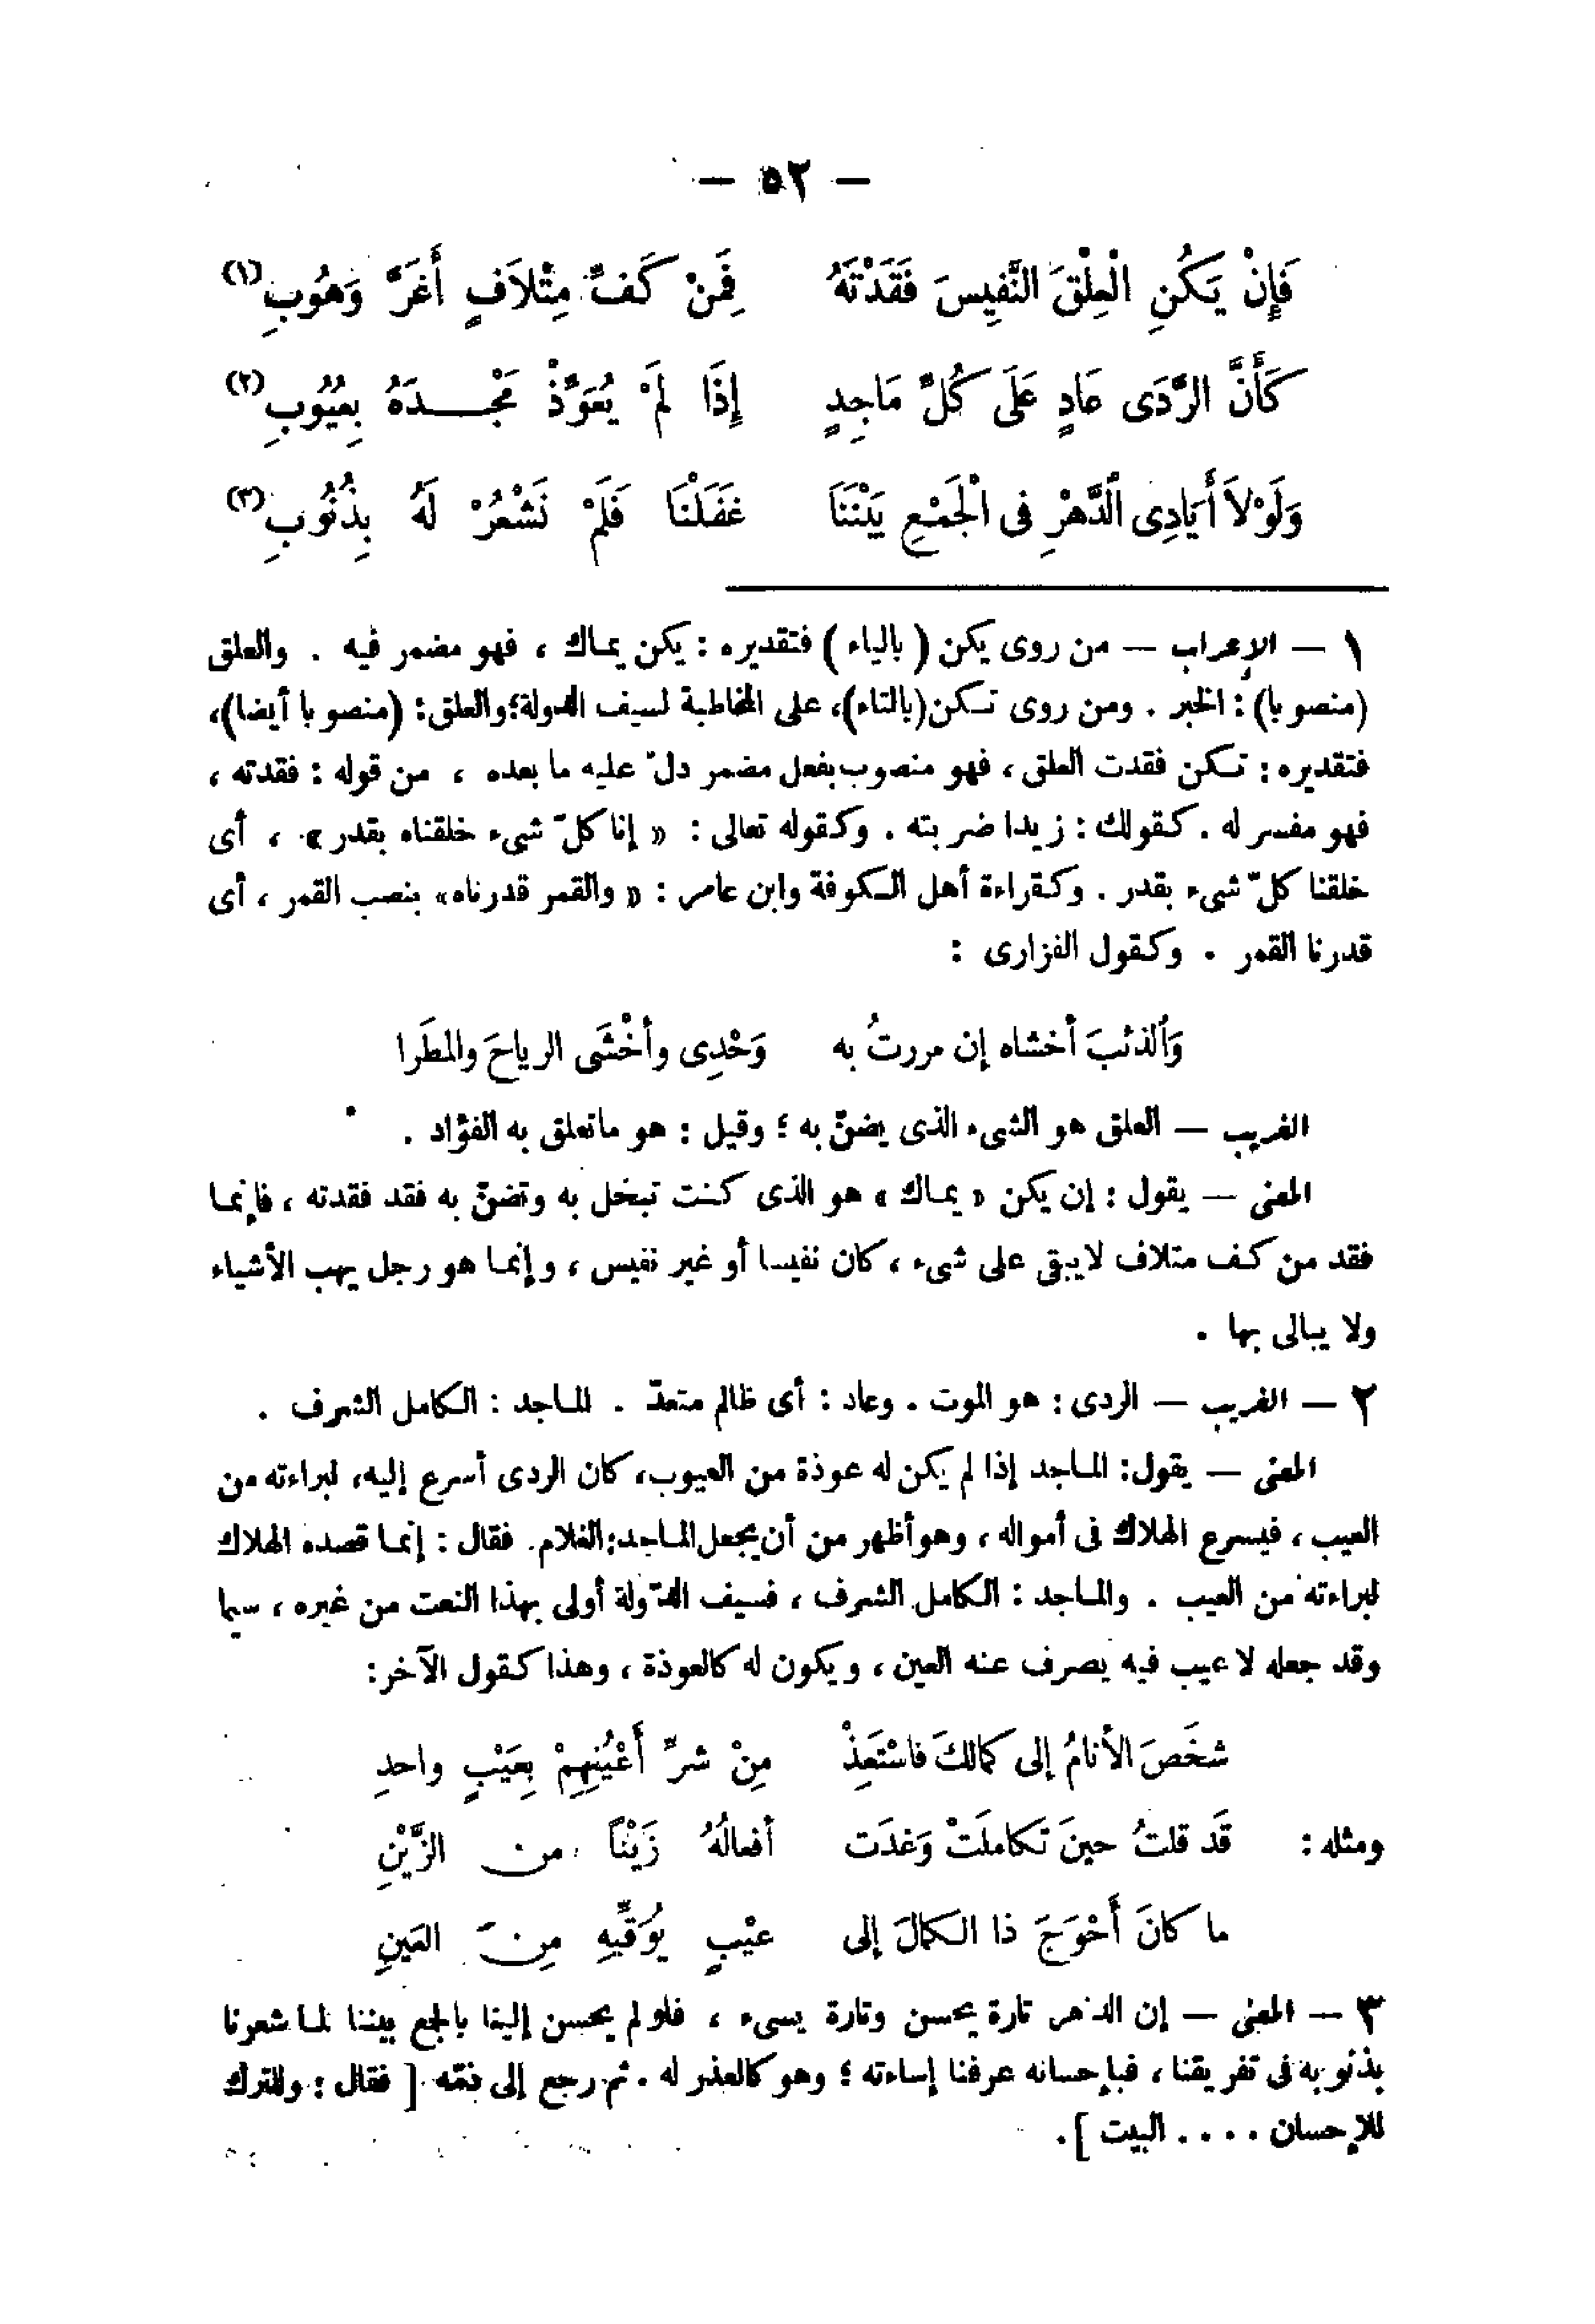 — ٥٢ —
فَإِنْ يَكُنِ الْعِلْقَ النَّفِيسَ فَقَدْتَهُ فَمِنْ كَفِّ مِتْلاَفٍ أَغَرَّ وَهُوبِ (١)
كَأَنَّ الرَّدَى عَادٍ عَلَى كُلِّ مَاجِدٍ إِذَا لَمْ يُعَوَّذْ مَجْـدَهُ بِعُيُوبِ (٢)
وَلَوْلاَ أَيَادِى الدَّهْرِ فى الْجَمْعِ بَيْنَنَا غَفَلْنَا فَلَمْ نَشْعُرْ لَهُ بِذُنُوبِ (٣)
١ — الإعراب — من روى يكن ( بالياء ) فتقديره : يكن يماك ، فهو مضمر فيه . والعلق
(منصوبا) : الخبر . ومن روى تكن (بالتاء)، على المخاطبة لسيف الدولة؛ والعلق: (منصوبا أيضا)،
فتقديره : تكن فقدت العلق ، فهو منصوب بفعل مضمر دلّ عليه ما بعده ، من قوله : فقدته ،
فهو مفسر له . كقولك : زيدا ضربته . وكقوله تعالى : « إنا كلّ شىء خلقناه بقدر » ، أى
خلقنا كلّ شىء بقدر . وكقراءة أهل الكوفة وابن عامر : « والقمر قدرناه » بنصب القمر ، أى
قدرنا القمر . وكقول الفزارى :
وَالذئبَ أخشاه إن مررتُ به وَحْدِى وأخْشَى الرياحَ والمطَرا
الغريب — العلق هو الشىء الذى يضنّ به ؛ وقيل : هو ما تعلق به الفؤاد .
المعنى — يقول : إن يكن « يماك » هو الذى كنت تبخل به وتضنّ به فقد فقدته ، فإنما
فقد من كف متلاف لا يبقى على شىء ، كان نفيسا أو غير نفيس ، وإنما هو رجل يهب الأشياء
ولا يبالى بها .
٢ — الغريب — الردى : هو الموت . وعاد : أى ظالم متعدّ . الماجد : الكامل الشرف .
المعنى — يقول: الماجد إذا لم يكن له عوذة من العيوب، كان الردى أسرع إليه، لبراءته من
العيب ، فيسرع الهلاك فى أمواله ، وهو أظهر من أن يجعل الماجد: الغلام. فقال : إنما قصده الهلاك
لبراءته من العيب . والماجد : الكامل الشرف ، فسيف الدّولة أولى بهذا النعت من غيره ، سيما
وقد جعله لا عيب فيه يصرف عنه العين ، ويكون له كالعوذة ، وهذا كقول الآخر:
شخَصَ الأنامُ إلى كمالكَ فاسْتَعِذْ مِنْ شرِّ أَعْيُنِهِمْ بِعَيْبٍ واحدِ
ومثله : قَد قلتُ حينَ تكاملَتْ وَغدَت أفعالُهُ زَيْناً من الزَّيْنِ
ما كانَ أَحْوَجَ ذا الكمالَ إلى عيْبٍ يُوَقِّيهِ مِنَ العَينِ
٣ — المعنى — إن الدهر تارة يحسن وتارة يسىء ، فلو لم يحسن إلينا بالجمع بيننا لما شعرنا
بذنوبه فى تفريقنا ، فبإحسانه عرفنا إساءته ؛ وهو كالعذر له . ثم رجع إلى ذمّه [ فقال : وللترك
للإحسان . . . . البيت ] .